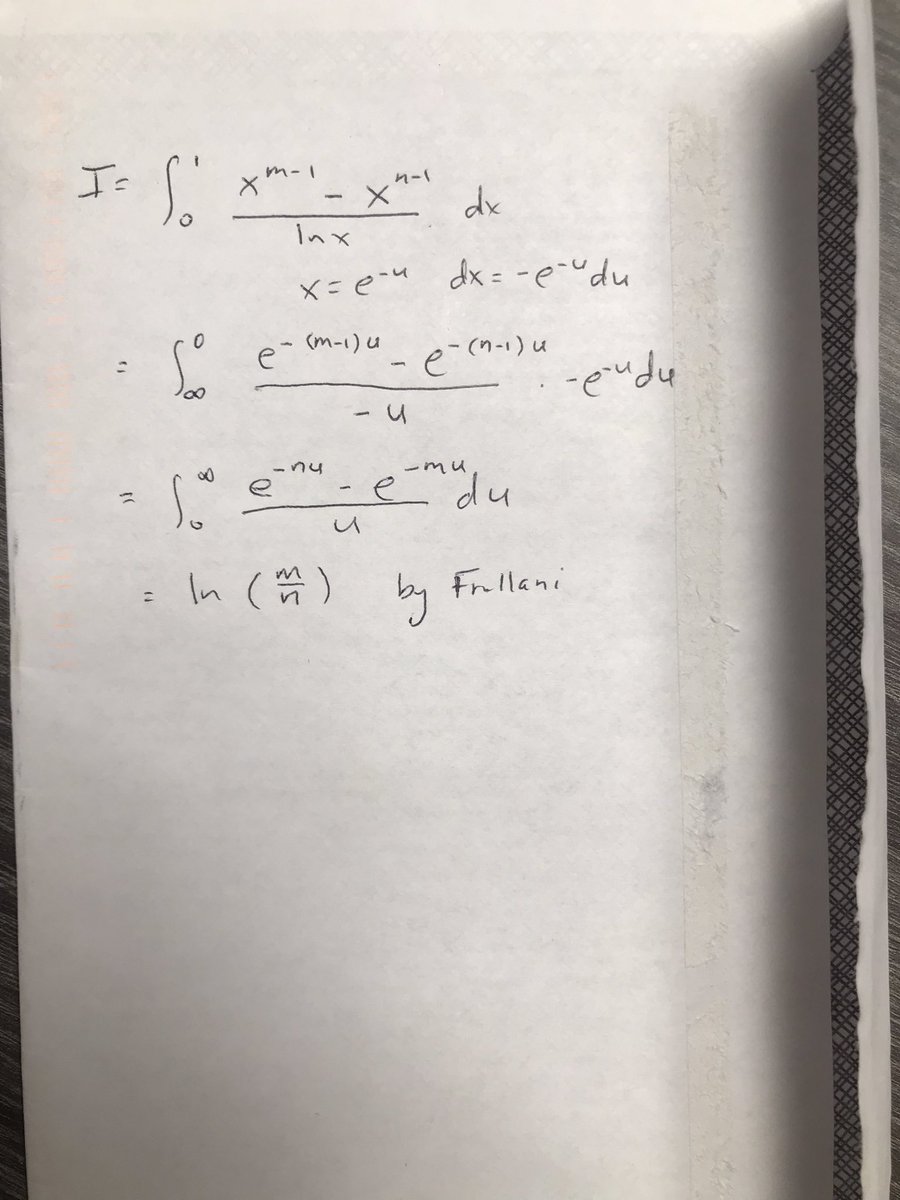 I = ∫₀¹ (x^(m-1) - x^(n-1)) / ln x dx
x = e^(-u) dx = -e^(-u) du
= ∫_∞^0 (e^(-(m-1)u) - e^(-(n-1)u)) / (-u) · -e^(-u) du
= ∫_0^∞ (e^(-nu) - e^(-mu)) / u du
= ln (m/n) by Frullani